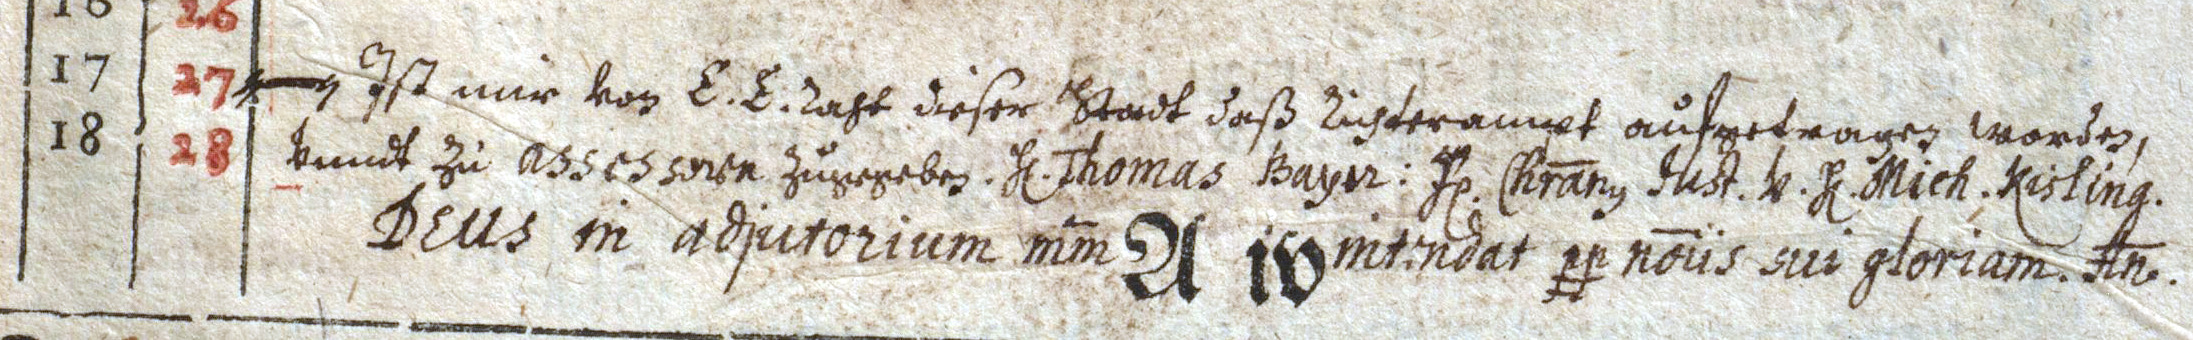 16 26
17 27 Ist mir von E. E. Raht dieser Stadt daß Richterampt aufgetragen worden,
18 28 vnndt zu Assessorn zugegeben. H. Thomas Bayer: H. Just. v. H. Mich. Kisling.
DEUS in adjutorium mm̄ A intendat pp nōīs sui gloriam. Am̄.